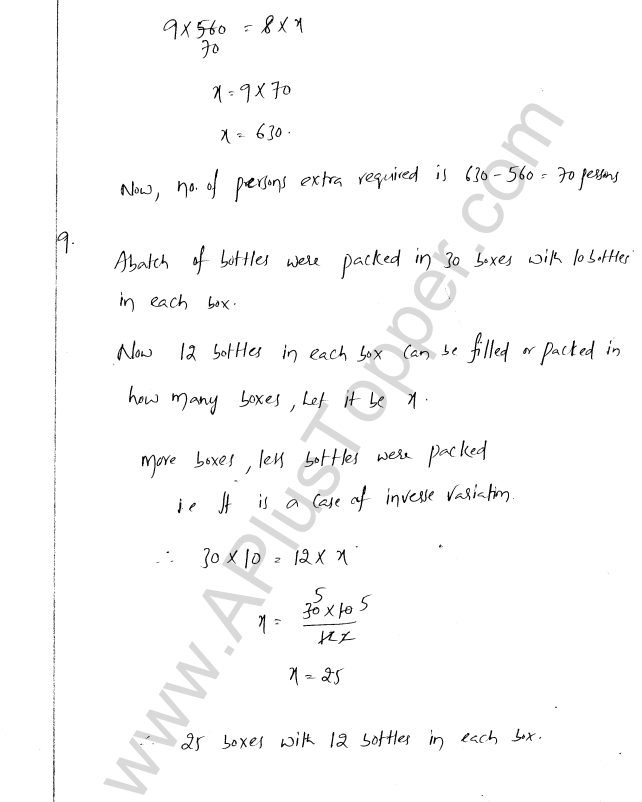 9×560 = 8×x
70
x = 9×70
x = 630.
Now, no. of persons extra required is 630-560 = 70 persons
9.
A batch of bottles were packed in 30 boxes with 10 bottles
in each box.
Now 12 bottles in each box can be filled or packed in
how many boxes, Let it be x.
More boxes, less bottles were packed
i.e It is a case of inverse variation.
∴ 30×10 = 12×x
5
x = 30×10 5
12 2
x = 25
∴ 25 boxes with 12 bottles in each box.
www.APlusTopper.com